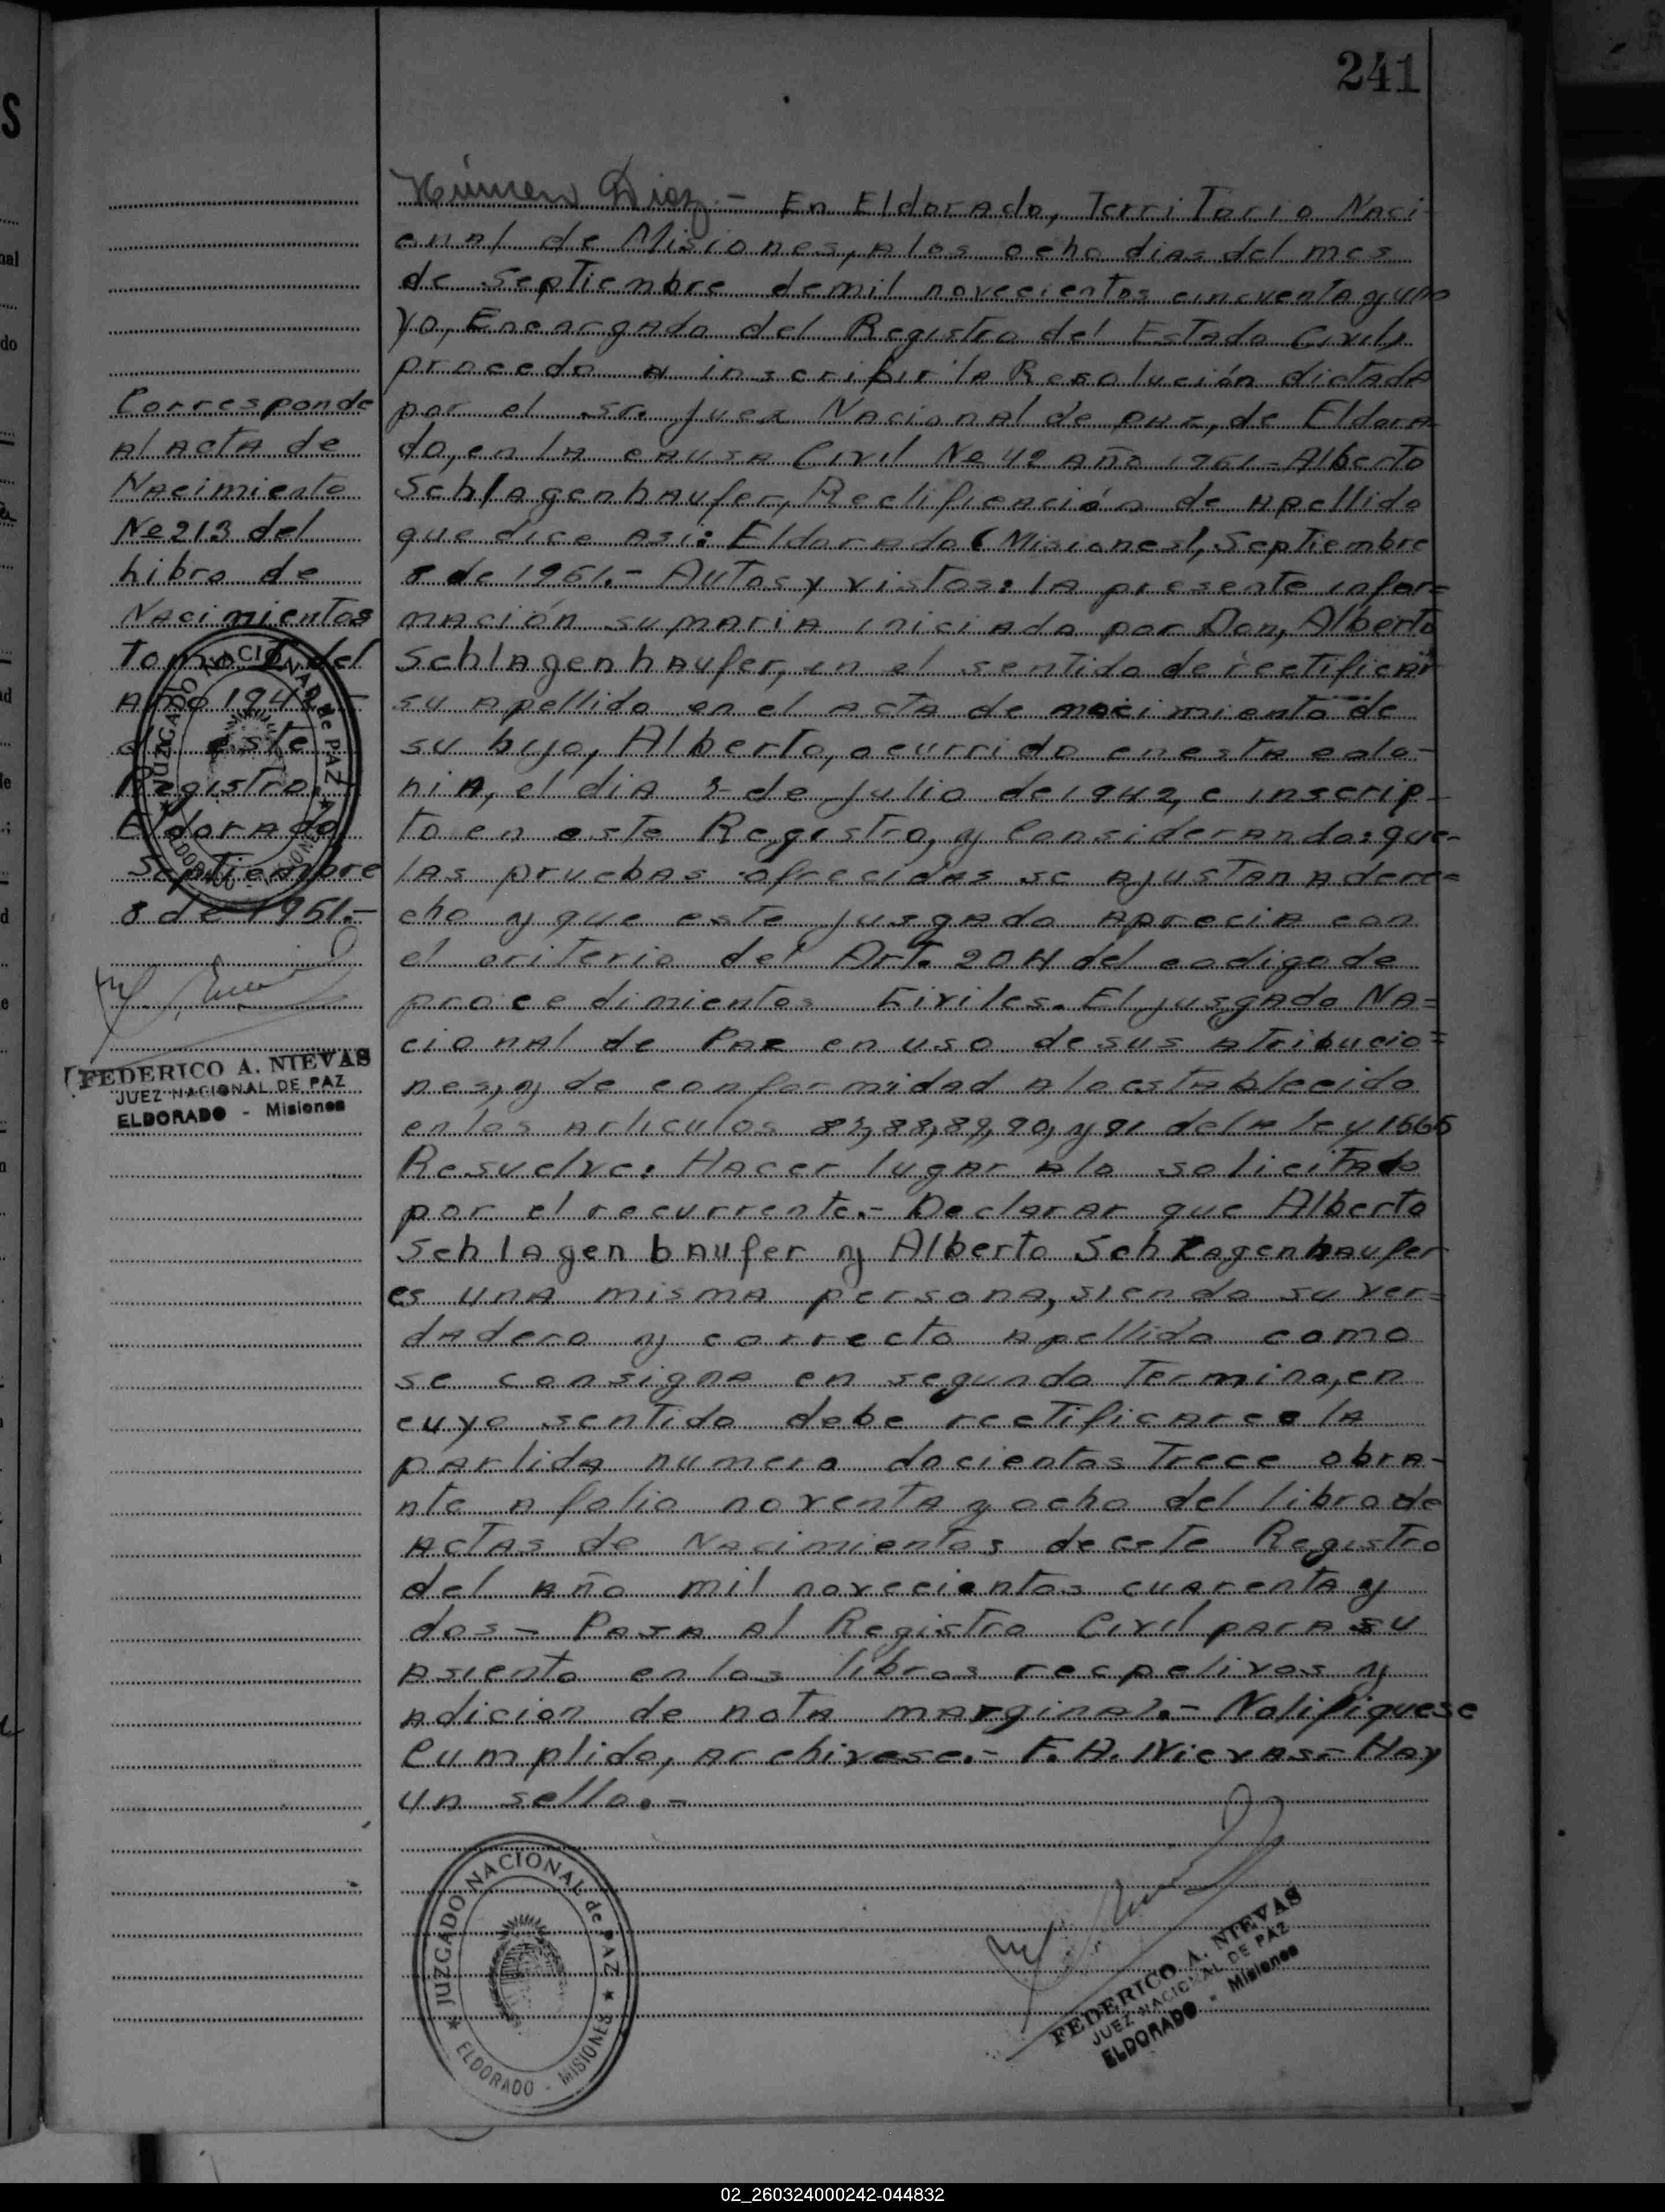 241
Número Diez.- En Eldorado, Territorio Naci-
onal de Misiones, a los ocho dias del mes
de Septiembre demil novecientos cincuenta y uno
Yo, Encargado del Registro del Estado Civil,
procedo a inscribir la Resolución dictada
por el Sr. Juez Nacional de Paz, de Eldora-
do, en la causa Civil No 42 año 1951-Alberto
Schlagenhaufer, Rectificación de apellido
que dice asi: Eldorado (Misiones), Septiembre
8 de 1951.- Autos y vistos: la presente infor=
mación sumaria iniciada por Don, Alberto
Schlagenhaufer, en el sentido de rectificar
su apellido en el acta de nacimiento de
su hijo, Alberto, ocurrido en esta colo-
nia, el dia de Julio de 1942, e inscrip-
to en este Registro, y Considerando: que-
las pruebas ofrecidas se ajustan a dere=
cho y que este jusgado aprecia con
el criterio del Art. 204 del codigo de
procedimientos Civiles. El jusgado Na=
cional de Paz en uso de sus atribucio=
nes, y de conformidad a lo establecido
en los articulos 88, 89, 90, y 91 de la ley 1565
Resuelve: Hacer lugar a lo solicitado
por el recurrente.- Declarar que Alberto
Schlagenbaufer y Alberto Schlagenhaufer
es una misma persona, siendo su ver=
dadero y correcto apellido como
se consigna en segundo termino, en
cuyo sentido debe rectificarce la
partida numero docientos trece obra-
nte a folio noventa y ocho del libro de
actas de Nacimientos de este Registro
del año mil novecientos cuarenta y
dos- Pasa al Registro Civil para su
asiento en los libros recpetivos y
adicion de nota marginal.- Notifiquese
Cumplido, archivese.- F. A. Nievas- Hay
un sello.-
Corresponde
al acta de
Nacimiento
No 213 del
Libro de
Nacimientos
Tomo del
año 1942-
de este
Registro.
Eldorado,
Septiembre
8 de 1951.-
JUZGADO NACIONAL de PAZ
ELDORADO - MISIONES
FEDERICO A. NIEVAS
JUEZ NACIONAL DE PAZ
ELDORADO - Misiones
JUZGADO NACIONAL de PAZ
ELDORADO - MISIONES
FEDERICO A. NIEVAS
JUEZ NACIONAL DE PAZ
ELDORADO - Misiones
02_260324000242-044832